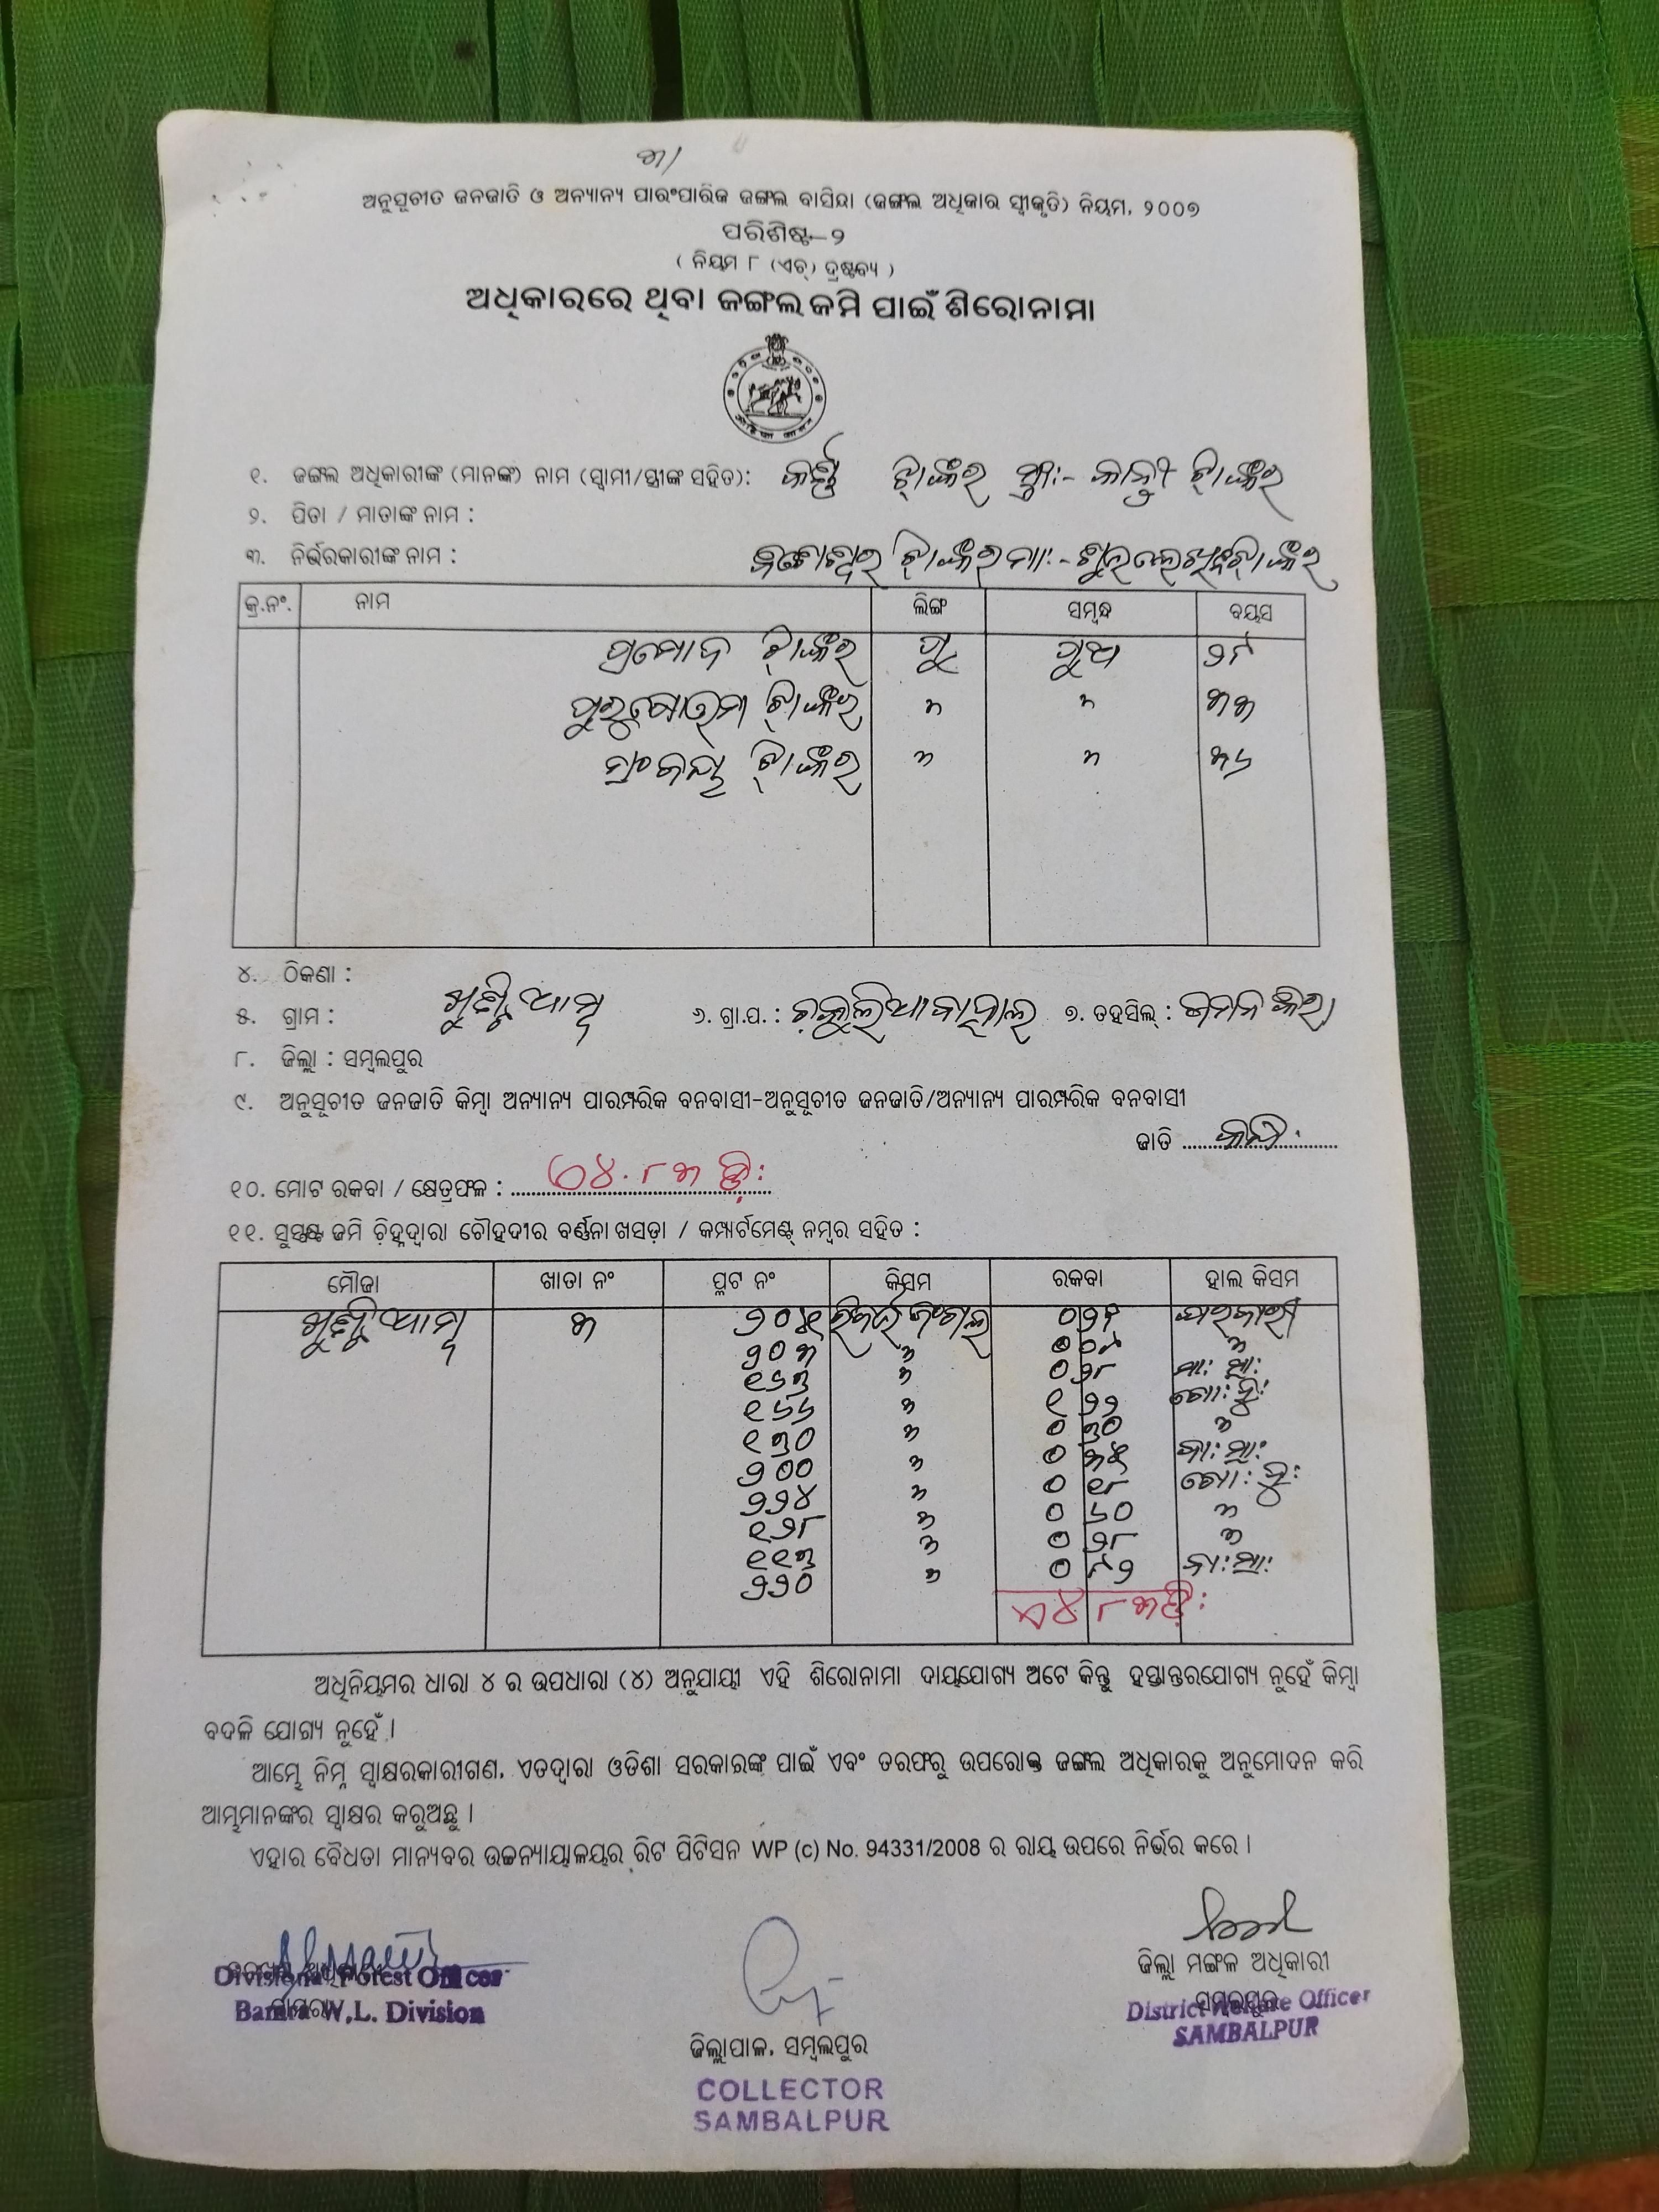 ୩/
ଅନୁସୂଚୀତ ଜନଜାତି ଓ ଅନ୍ୟାନ୍ୟ ପାରଂପାରିକ ଜଙ୍ଗଲ ବାସିନ୍ଦା (ଜଙ୍ଗଲ ଅଧିକାର ସ୍ୱୀକୃତି) ନିୟମ, ୨୦୦୭
ପରିଶିଷ୍ଟ–୨
( ନିୟମ ୮ (ଏଚ୍) ଦ୍ରଷ୍ଟବ୍ୟ )
ଅଧିକାରରେ ଥିବା ଜଙ୍ଗଲ ଜମି ପାଇଁ ଶିରୋନାମା
୧. ଜଙ୍ଗଲ ଅଧିକାରୀଙ୍କ (ମାନଙ୍କ) ନାମ (ସ୍ୱାମୀ/ସ୍ତ୍ରୀଙ୍କ ସହିତ): କର୍ଣ୍ଣ ଝାଙ୍କର ସ୍ତ୍ରୀ:- ଝାଙ୍କର
୨. ପିତା / ମାତାଙ୍କ ନାମ :
୩. ନିର୍ଭରକାରୀଙ୍କ ନାମ : ଝାଙ୍କର ମା:- ଝାଙ୍କର
କ୍ର.ନଂ. ନାମ ଲିଙ୍ଗ ସମ୍ବନ୍ଧ ବୟସ
ପ୍ରମୋଦ ଝାଙ୍କର ପୁ ପୁଅ ୨୯
ଝାଙ୍କର " " ୩୩
ଝାଙ୍କର " " ୩୬
୪. ଠିକଣା :
୫. ଗ୍ରାମ : ୬. ଗ୍ରା.ପ. : ୭. ତହସିଲ୍ : ଜମନକିରା
୮. ଜିଲ୍ଲା : ସମ୍ବଲପୁର
୯. ଅନୁସୂଚୀତ ଜନଜାତି କିମ୍ବା ଅନ୍ୟାନ୍ୟ ପାରମ୍ପରିକ ବନବାସୀ–ଅନୁସୂଚୀତ ଜନଜାତି/ଅନ୍ୟାନ୍ୟ ପାରମ୍ପରିକ ବନବାସୀ
ଜାତି ..........
୧୦. ମୋଟ ରକବା / କ୍ଷେତ୍ରଫଳ : ୪.୮୩ ଡି:
୧୧. ସୁସ୍ପଷ୍ଟ ଜମି ଚିହ୍ନଦ୍ୱାରା ଚୌହଦୀର ବର୍ଣ୍ଣନା ଖସଡ଼ା / କମ୍ପାର୍ଟମେଣ୍ଟ୍ ନମ୍ବର ସହିତ :
ମୌଜା ଖାତା ନଂ ପ୍ଲଟ ନଂ କିସମ ରକବା ହାଲ କିସମ
୩ ୨୦୫ ରିଜର୍ଭ ଜଂଗଲ
୨୦୩ "
୧୬୭ " ୦ ୨୮
୧୬୬ " ୧ ୨୨
୧୭୦ " ୦ ୭୦ "
୨୦୦ " ୦ ୩୫
୨୨୪ " ୦ ୧୮
୧୨୮ " ୦ ୬୦ "
୧୧୭ " ୦ ୨୮ "
୨୨୦ " ୦ ୯୨
୪ ୮୩ ଡି:
ଅଧିନିୟମର ଧାରା ୪ ର ଉପଧାରା (୪) ଅନୁଯାୟୀ ଏହି ଶିରୋନାମା ଦାୟଯୋଗ୍ୟ ଅଟେ କିନ୍ତୁ ହସ୍ତାନ୍ତରଯୋଗ୍ୟ ନୁହେଁ କିମ୍ବା
ବଦଳି ଯୋଗ୍ୟ ନୁହେଁ ।
ଆମ୍ଭେ ନିମ୍ନ ସ୍ୱାକ୍ଷରକାରୀଗଣ, ଏତଦ୍ୱାରା ଓଡିଶା ସରକାରଙ୍କ ପାଇଁ ଏବଂ ତରଫରୁ ଉପରୋକ୍ତ ଜଙ୍ଗଲ ଅଧିକାରକୁ ଅନୁମୋଦନ କରି
ଆମ୍ଭମାନଙ୍କର ସ୍ୱାକ୍ଷର କରୁଅଛୁ ।
ଏହାର ବୈଧତା ମାନ୍ୟବର ଉଚ୍ଚନ୍ୟାୟାଳୟର ରିଟ ପିଟିସନ WP (c) No. 94331/2008 ର ରାୟ ଉପରେ ନିର୍ଭର କରେ ।
Divisional Forest Officer
Bamra W.L. Division
ଜିଲ୍ଲାପାଳ, ସମ୍ବଲପୁର
COLLECTOR
SAMBALPUR
ଜିଲ୍ଲା ମଙ୍ଗଳ ଅଧିକାରୀ
ସମ୍ବଲପୁର
District Welfare Officer
SAMBALPUR